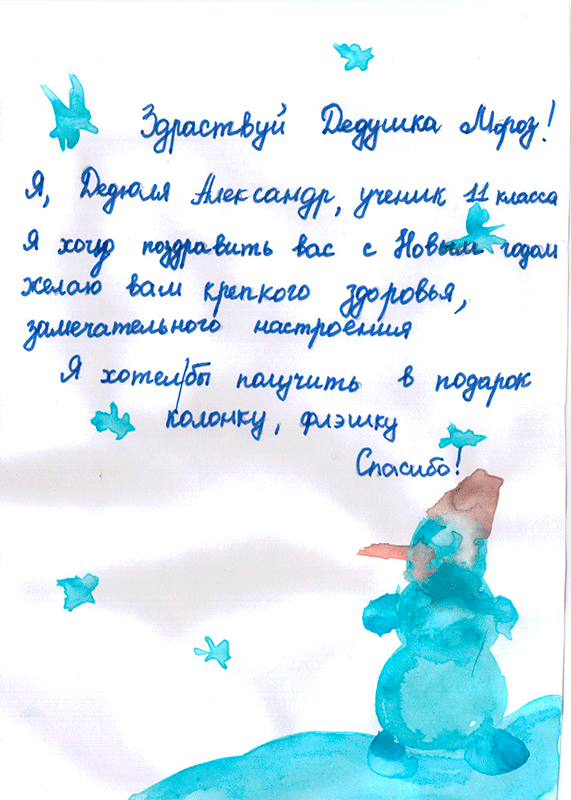 Здраствуй Дедушка Мороз!
Я, Дедюля Александр, ученик 11 класса
Я хочу поздравить вас с Новым годом
желаю вам крепкого здоровья,
замечательного настроения
Я хотел/бы получить в подарок
колонку, флэшку
Спасибо!